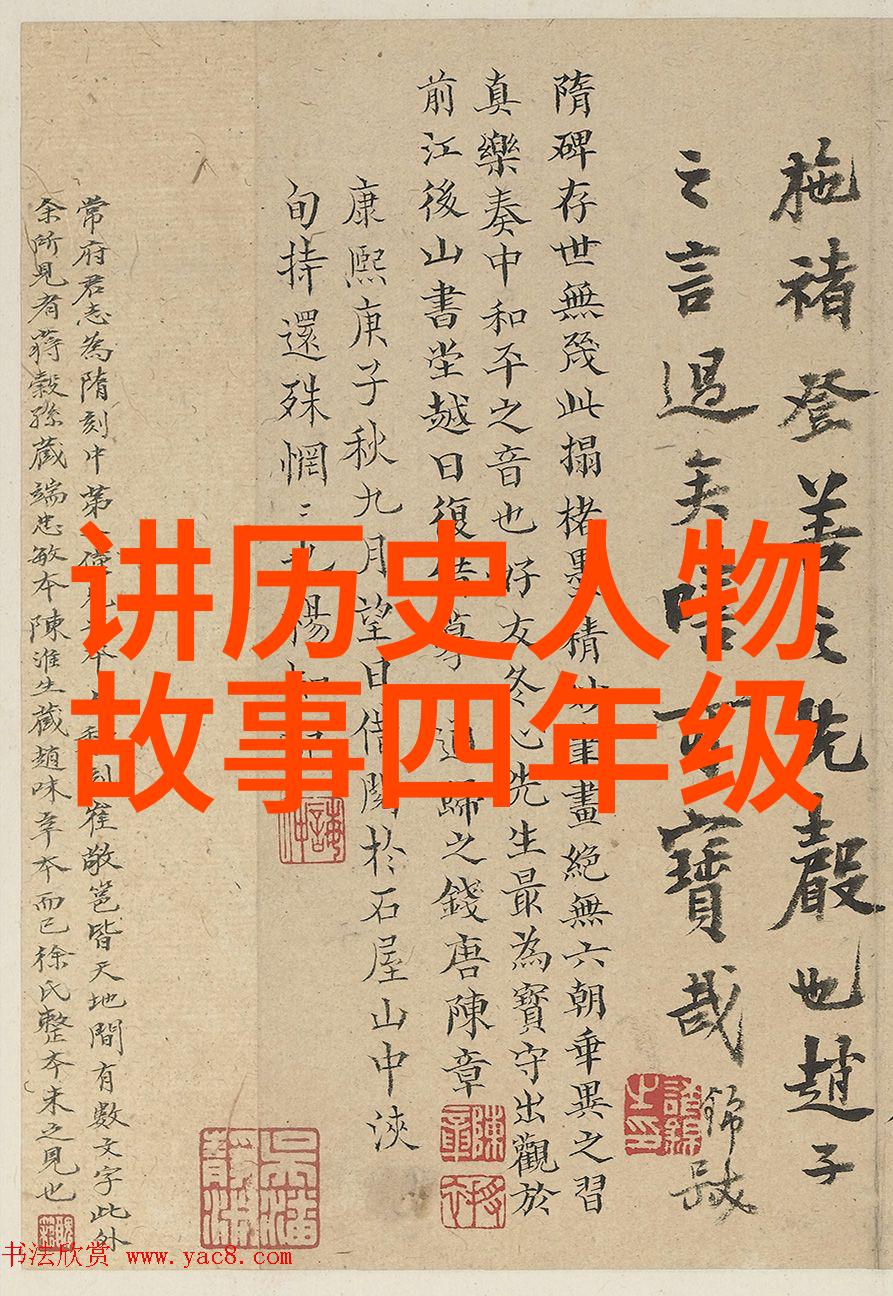 讲历史人物
故事四年级
施褚登善之先声也趙子
之言過矣
寶哉 錦
隋碑存世無幾此搨楮墨精
畫絕無六朝垂異之習
真樂奏中和平之音也仔友冬心先生最為寶守出觀於
前江後山書堂越日復
歸之錢唐陳章
康熙庚子秋九月望日借閱於石屋山中浹
旬持還殊惘
常府君志為隋刻中第
崔敬邕皆天地間有數文字此外
余所見有蔣穀孫藏端忠敏本陳淮生藏趙味辛本而已徐氏整本未之見也
書法欣赏 www.yac8.com